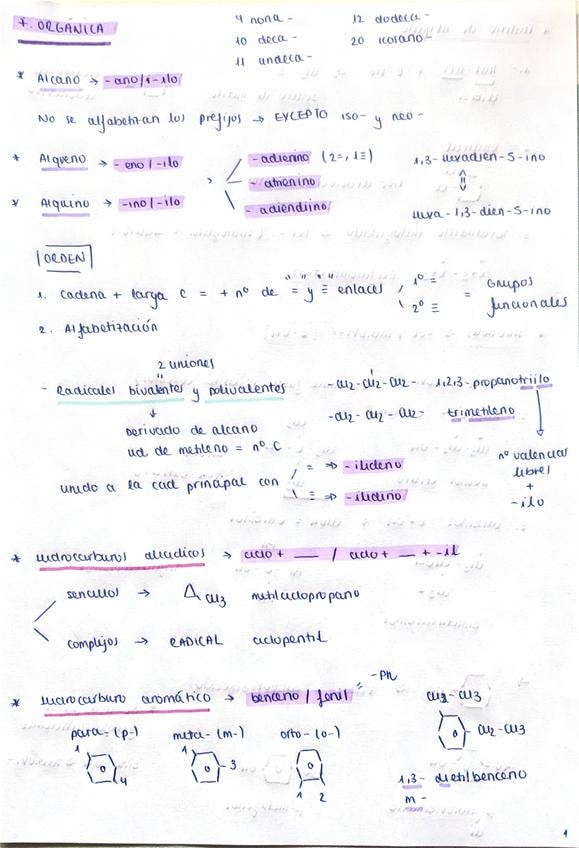 F. ORGÁNICA
9 nona -
10 deca -
11 undeca -
12 dodeca -
20 icosano -
* Alcano → - ano / - ilo
No se alfabetizan los prefijos → EXCEPTO iso- y neo -
* Alqueno → - eno / -ilo
* Alquino → -ino / -ilo
- adienino (2=, 1≡)
- atrienino
- adiendiino
1,3- hexadien-5-ino
hexa-1,3-dien-5-ino
ORDEN
1. Cadena + larga C = + nº de = y ≡ enlaces , 1º = \ 2º ≡ = Grupos funcionales
2. Alfabetización
2 uniones
- Radicales bivalentes y polivalentes
Derivado de alcano
ud de metileno = nº C
unido a la cad principal con
= ⇒ - ilideno
≡ ⇒ - ilidino
-CH2-CH2-CH2- 1,2,3-propanotriilo
-CH2-CH2-CH2- trimetileno
nº valencias
libres
+
-ilo
* Hidrocarburos alicíclicos → ciclo + __ / ciclo + __ + -il
sencillos → CH3 metilciclopropano
complejos → RADICAL ciclopentil
* Hidrocarburo aromático → benceno / fenil = -Ph
para- (p-) meta- (m-) orto- (o-)
1 4
1 3
1 2
CH2-CH3
CH2-CH3
1,3- dietilbenceno
m -
1